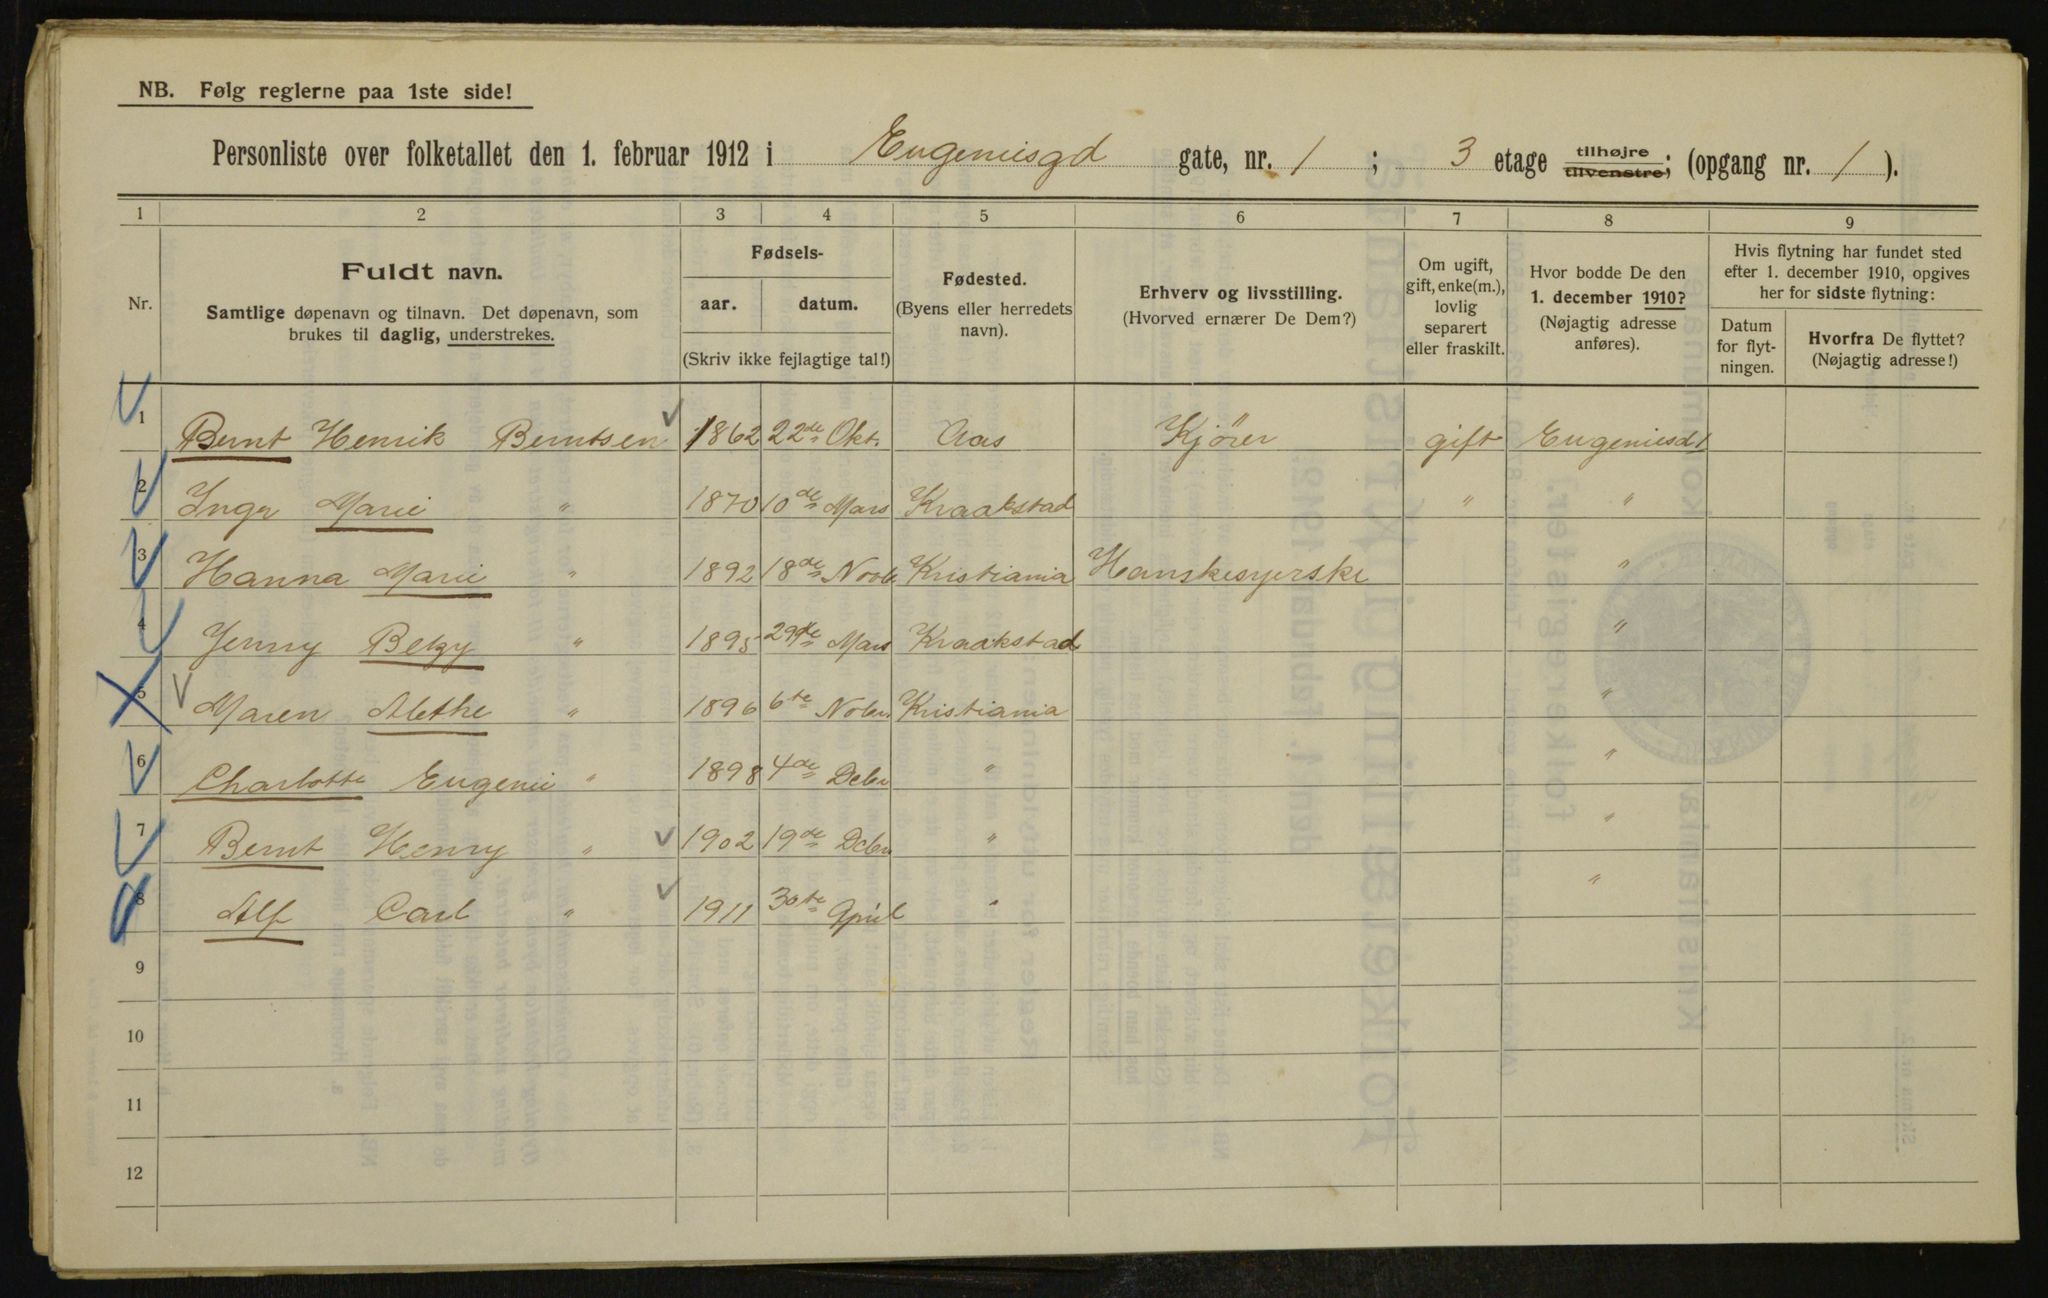 NB. Følg reglerne paa 1ste side!
Personliste over folketallet den 1. februar 1912 i Eugeniesgd gate, nr. 1 ; 3 etage tilhøjre tilvenstre; (opgang nr. 1 ).
1 2 3 4 5 6 7 8 9
Nr. Fuldt navn. Samtlige døpenavn og tilnavn. Det døpenavn, som brukes til daglig, understrekes.
Fødsels- aar. datum. (Skriv ikke fejlagtige tal!)
Fødested. (Byens eller herredets navn).
Erhverv og livsstilling. (Hvorved ernærer De Dem?)
Om ugift, gift, enke(m.), lovlig separert eller fraskilt.
Hvor bodde De den 1. december 1910? (Nøjagtig adresse anføres).
Hvis flytning har fundet sted efter 1. december 1910, opgives her for sidste flytning:
Datum for flyt-ningen. Hvorfra De flyttet? (Nøjagtig adresse!)
1 Bernt Henrik Berntsen 1862 22de Okt. Aas Kjører gift Eugeniesd 1
2 Inger Marie " 1870 10de Mars Kraakstad " "
3 Hanna Marie " 1892 18de Novbr Kristiania Hanskesyerske "
4 Jenny Betzy " 1895 29de Mars Kraakstad "
5 Maren Alethe " 1896 6te Nobr. Kristiania "
6 Charlotte Eugenie " 1898 4de Decbr " "
7 Bernt Henry " 1902 19de Decbr " "
8 Alf Carl " 1911 30te April " "
9
10
11
12